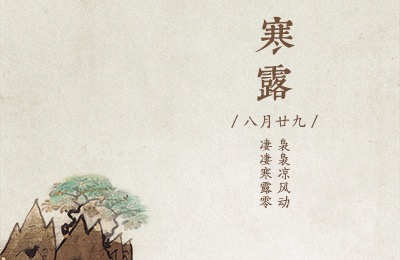 寒露
/八月廿九/
袅袅凉风动
凄凄寒露零